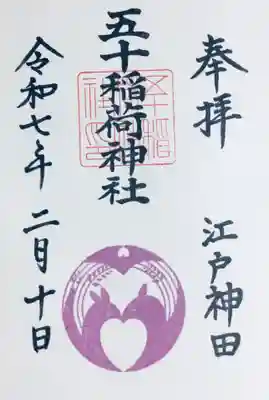 奉拝
江戸神田
五十稲荷神社
令和七年
二月十日